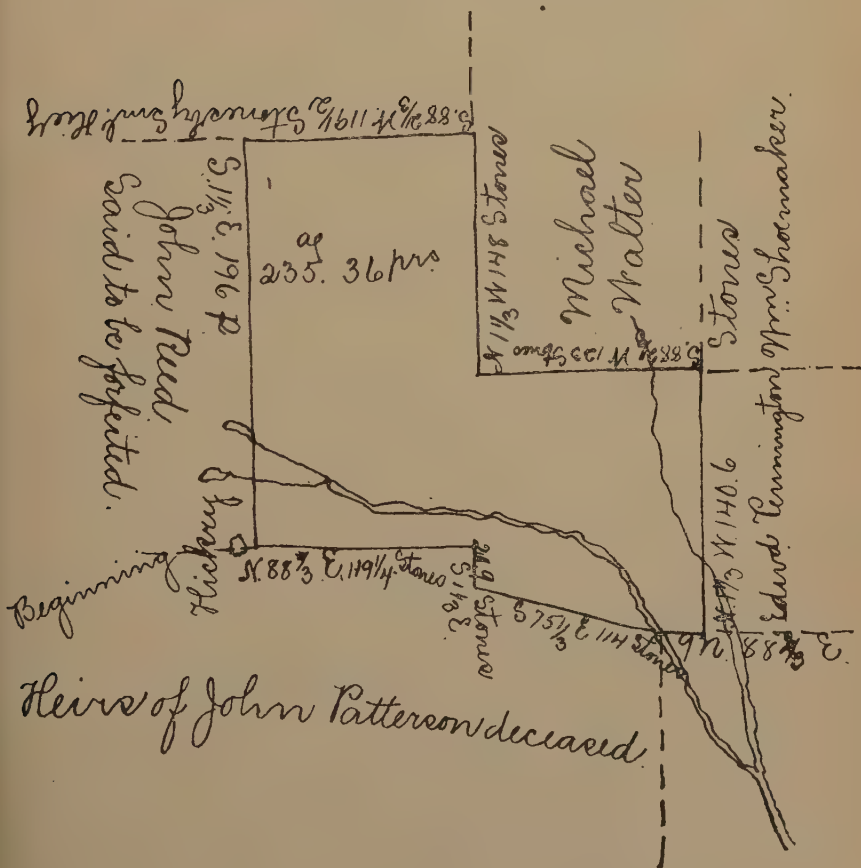 S. 88 2/3 W. 119 1/2 Stones by Saml.
S. 1 1/3 E. 196 p
John Reed
Said to be forfeited.
ag
235. 36 prs
N 1 1/3 W 148 Stones
Michael
Walter
S. 88 2/3 W 123 Stones
Stones
N. 1 1/3 W. 140.6
Edwd Pennington Wm. Shoemaker.
Beginning
Hickry
N. 88 2/3 E 119 1/4. Stones
S 1 1/3 E
24.9 Stones
S 75 1/3 E 114 Stones
N. 88 2/3 E
Heirs of John Patterson deceased